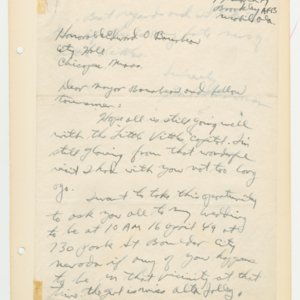 Brookley AFB
Mobile Ala
Honorable Edward O Bourbeau
City Hall
Chicopee Mass.
Dear Mayor Bourbeau and fellow
townsmen:
Hope all is still going well
with the Little Vittles Capitol. I'm
still glowing from that wonderful
visit I had with you not too long
ago.
I want to take this opportunity
to ask you all to my wedding
to be at 10 AM 16 April 49 at
730 Park St Boulder City
Nevada if any of you happen
to be in that vicinity at that
time. The girl is miss alta Jolley.